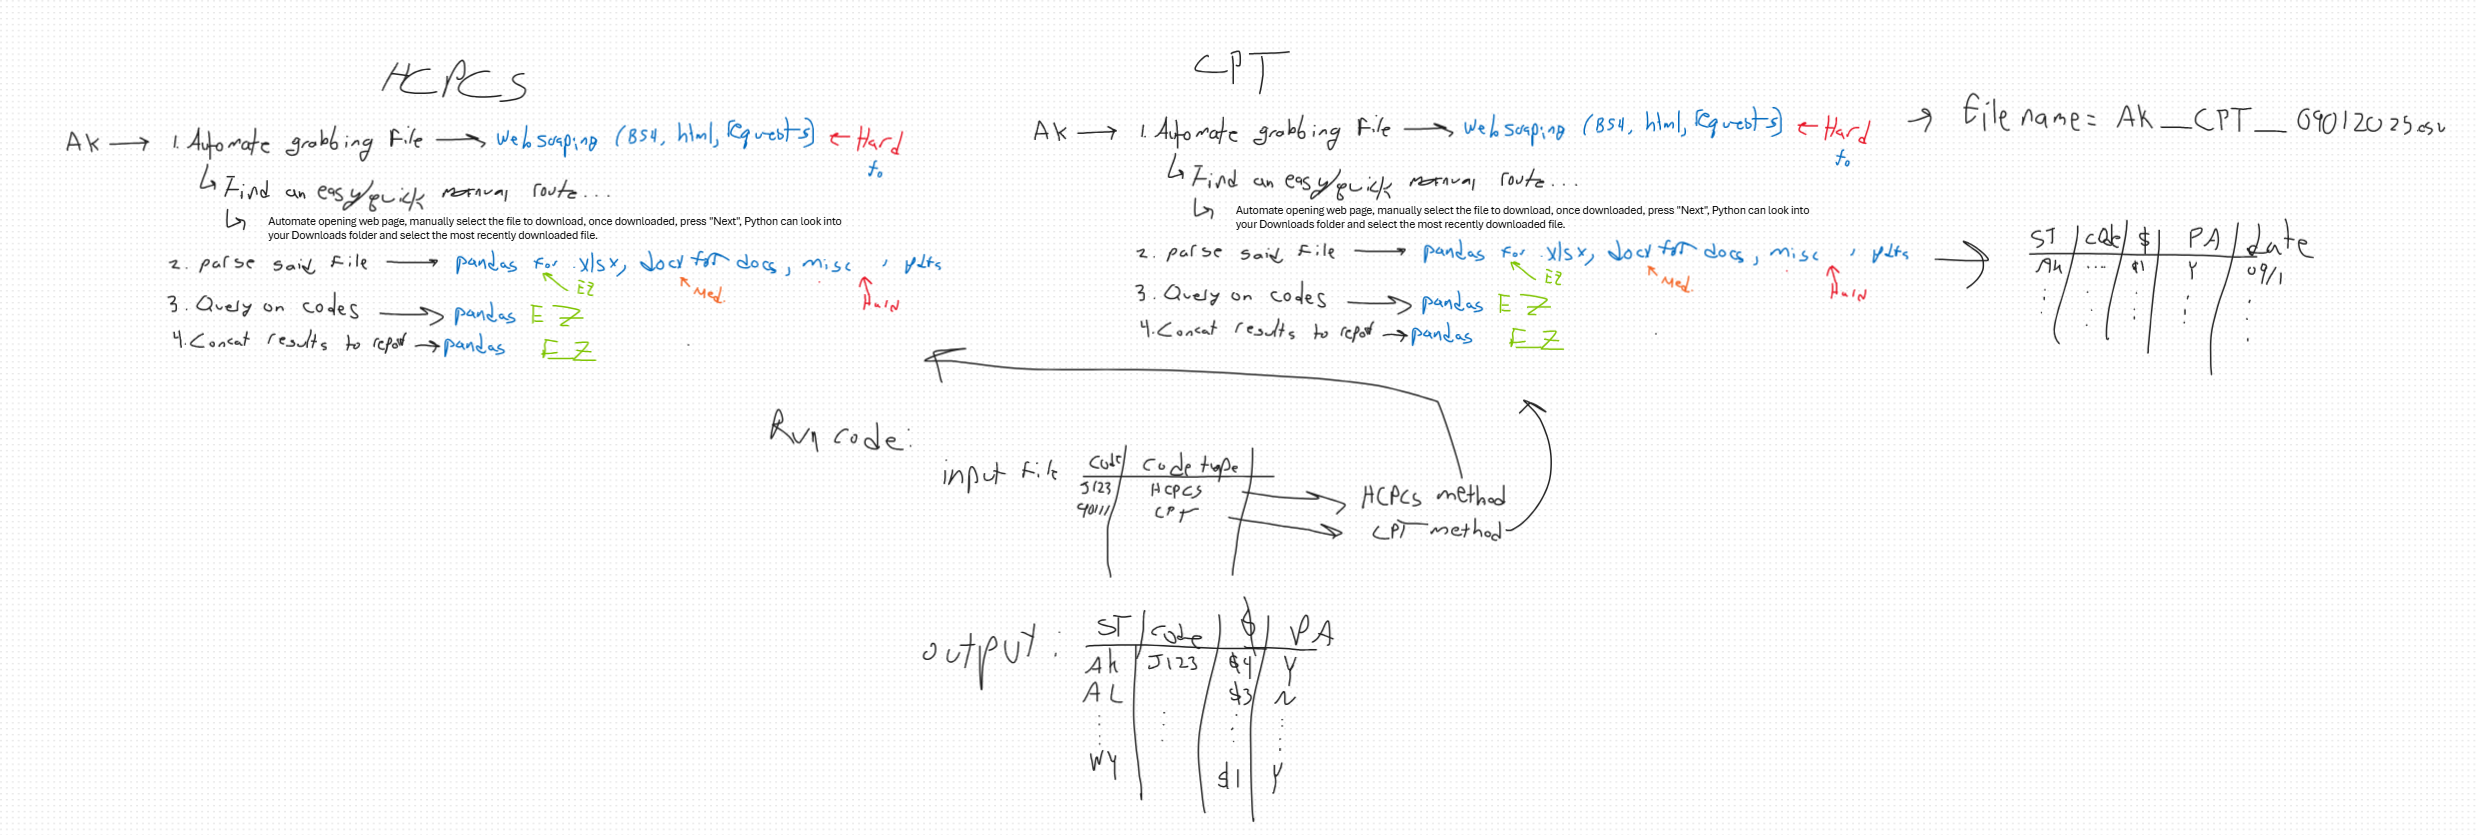 HCPCS
AK → 1. Automate grabbing file → Web scraping (BS4, html, requests) ← Hard
to
↳ Find an easy/quick manual route...
↳ Automate opening web page, manually select the file to download, once downloaded, press "Next", Python can look into
your Downloads folder and select the most recently downloaded file.
2. parse said file → pandas for .xlsx, docx for docs, misc , pdfs
EZ Med. Hard
3. Query on codes → pandas EZ
4. Concat results to report → pandas EZ
CPT
AK → 1. Automate grabbing file → Web scraping (BS4, html, requests) ← Hard
to
↳ Find an easy/quick manual route...
↳ Automate opening web page, manually select the file to download, once downloaded, press "Next", Python can look into
your Downloads folder and select the most recently downloaded file.
2. parse said file → pandas for .xlsx, docx for docs, misc , pdfs
EZ Med. Hard
3. Query on codes → pandas EZ
4. Concat results to report → pandas EZ
→ file name = AK_CPT_09012025.csv
ST code $ PA date
AK ... $1 Y 09/1
Run code:
input file
code code type
J123 HCPCS → HCPCS method
90111 CPT → CPT method
output:
ST code $ PA
AK J123 $4 Y
AL $3 N
WY $1 Y